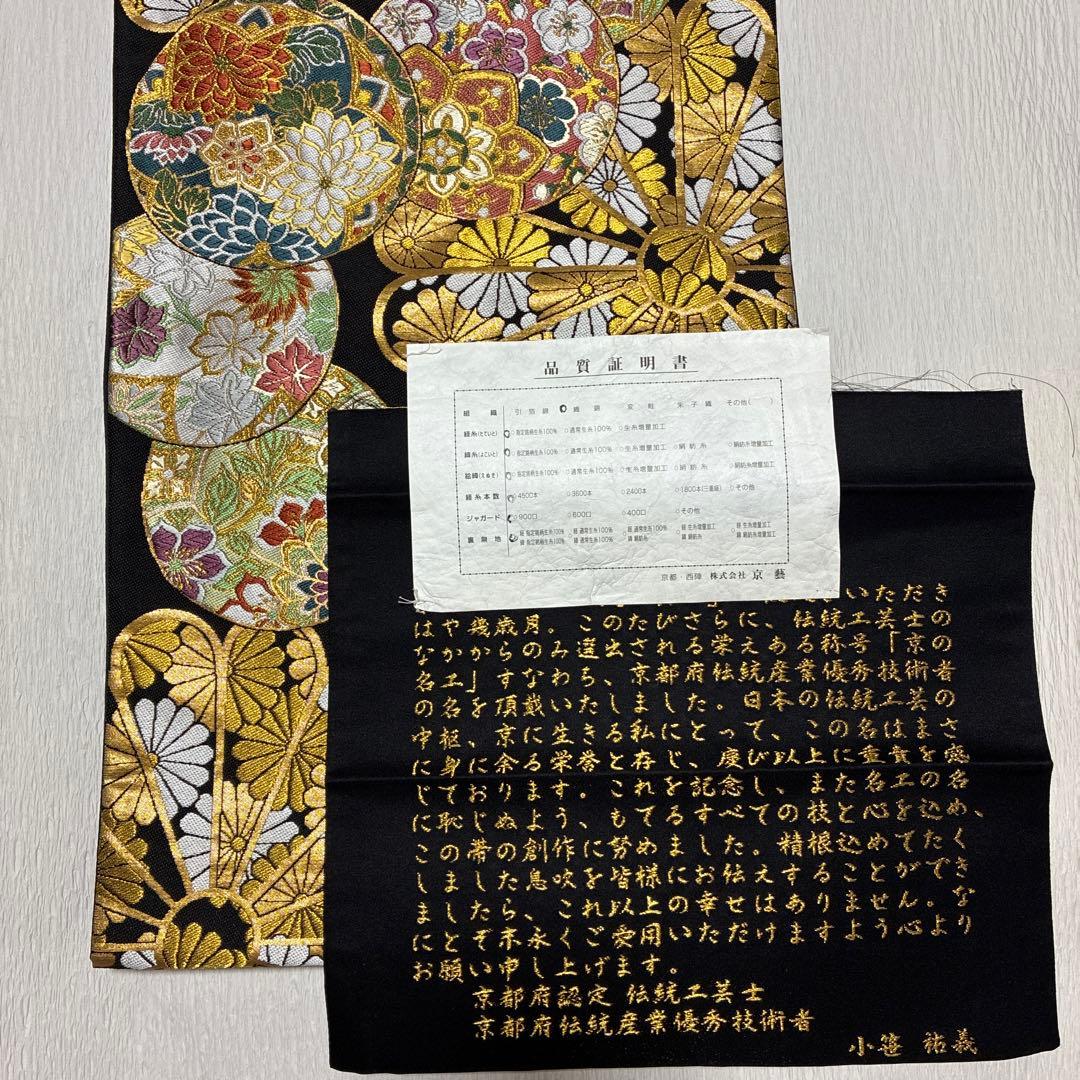 品質証明書
組織 引箔錦 織錦 変り 朱子織 その他( )
経糸(たていと) ○指定銘柄生糸100% ○通常生糸100% ○生糸増量加工
緯糸(よこいと) ○指定銘柄生糸100% ○通常生糸100% ○生糸増量加工 ○絹紡糸 ○絹紡糸増量加工
絵緯(えぬき) ○指定銘柄生糸100% ○通常生糸100% ○生糸増量加工 ○絹紡糸 ○絹紡糸増量加工
経糸本数 ○4500本 ○3600本 ○2400本 ○1800本(三重経) ○その他
ジャガード ○900口 ○600口 ○400口 ○その他
裏無地 経 指定銘柄生糸100% 経 通常生糸100% 経 通常生糸100% 経 生糸増量加工 経 生糸増量加工
緯 指定銘柄生糸100% 緯 通常生糸100% 緯 絹紡糸 緯 絹紡糸 緯 絹紡糸増量加工
京都 西陣 株式会社 京藝
いただき
はや幾歳月。このたびさらに、伝統工芸士の
なかからのみ選出される栄えある称号「京の
名工」すなわち、京都府伝統産業優秀技術者
の名を頂戴いたしました。日本の伝統工芸の
中枢、京に生きる私にとって、この名はまさ
に身に余る栄誉と存じ、慶び以上に重責を感
じております。これを記念し、また名工の名
に恥じぬよう、もてるすべての技と心を込め、
この帯の創作に努めました。精根込めてたく
しました息吹を皆様にお伝えすることができ
ましたら、これ以上の幸せはありません。な
にとぞ末永くご愛用いただけますよう心より
お願い申し上げます。
京都府認定 伝統工芸士
京都府伝統産業優秀技術者
小笹 祐義